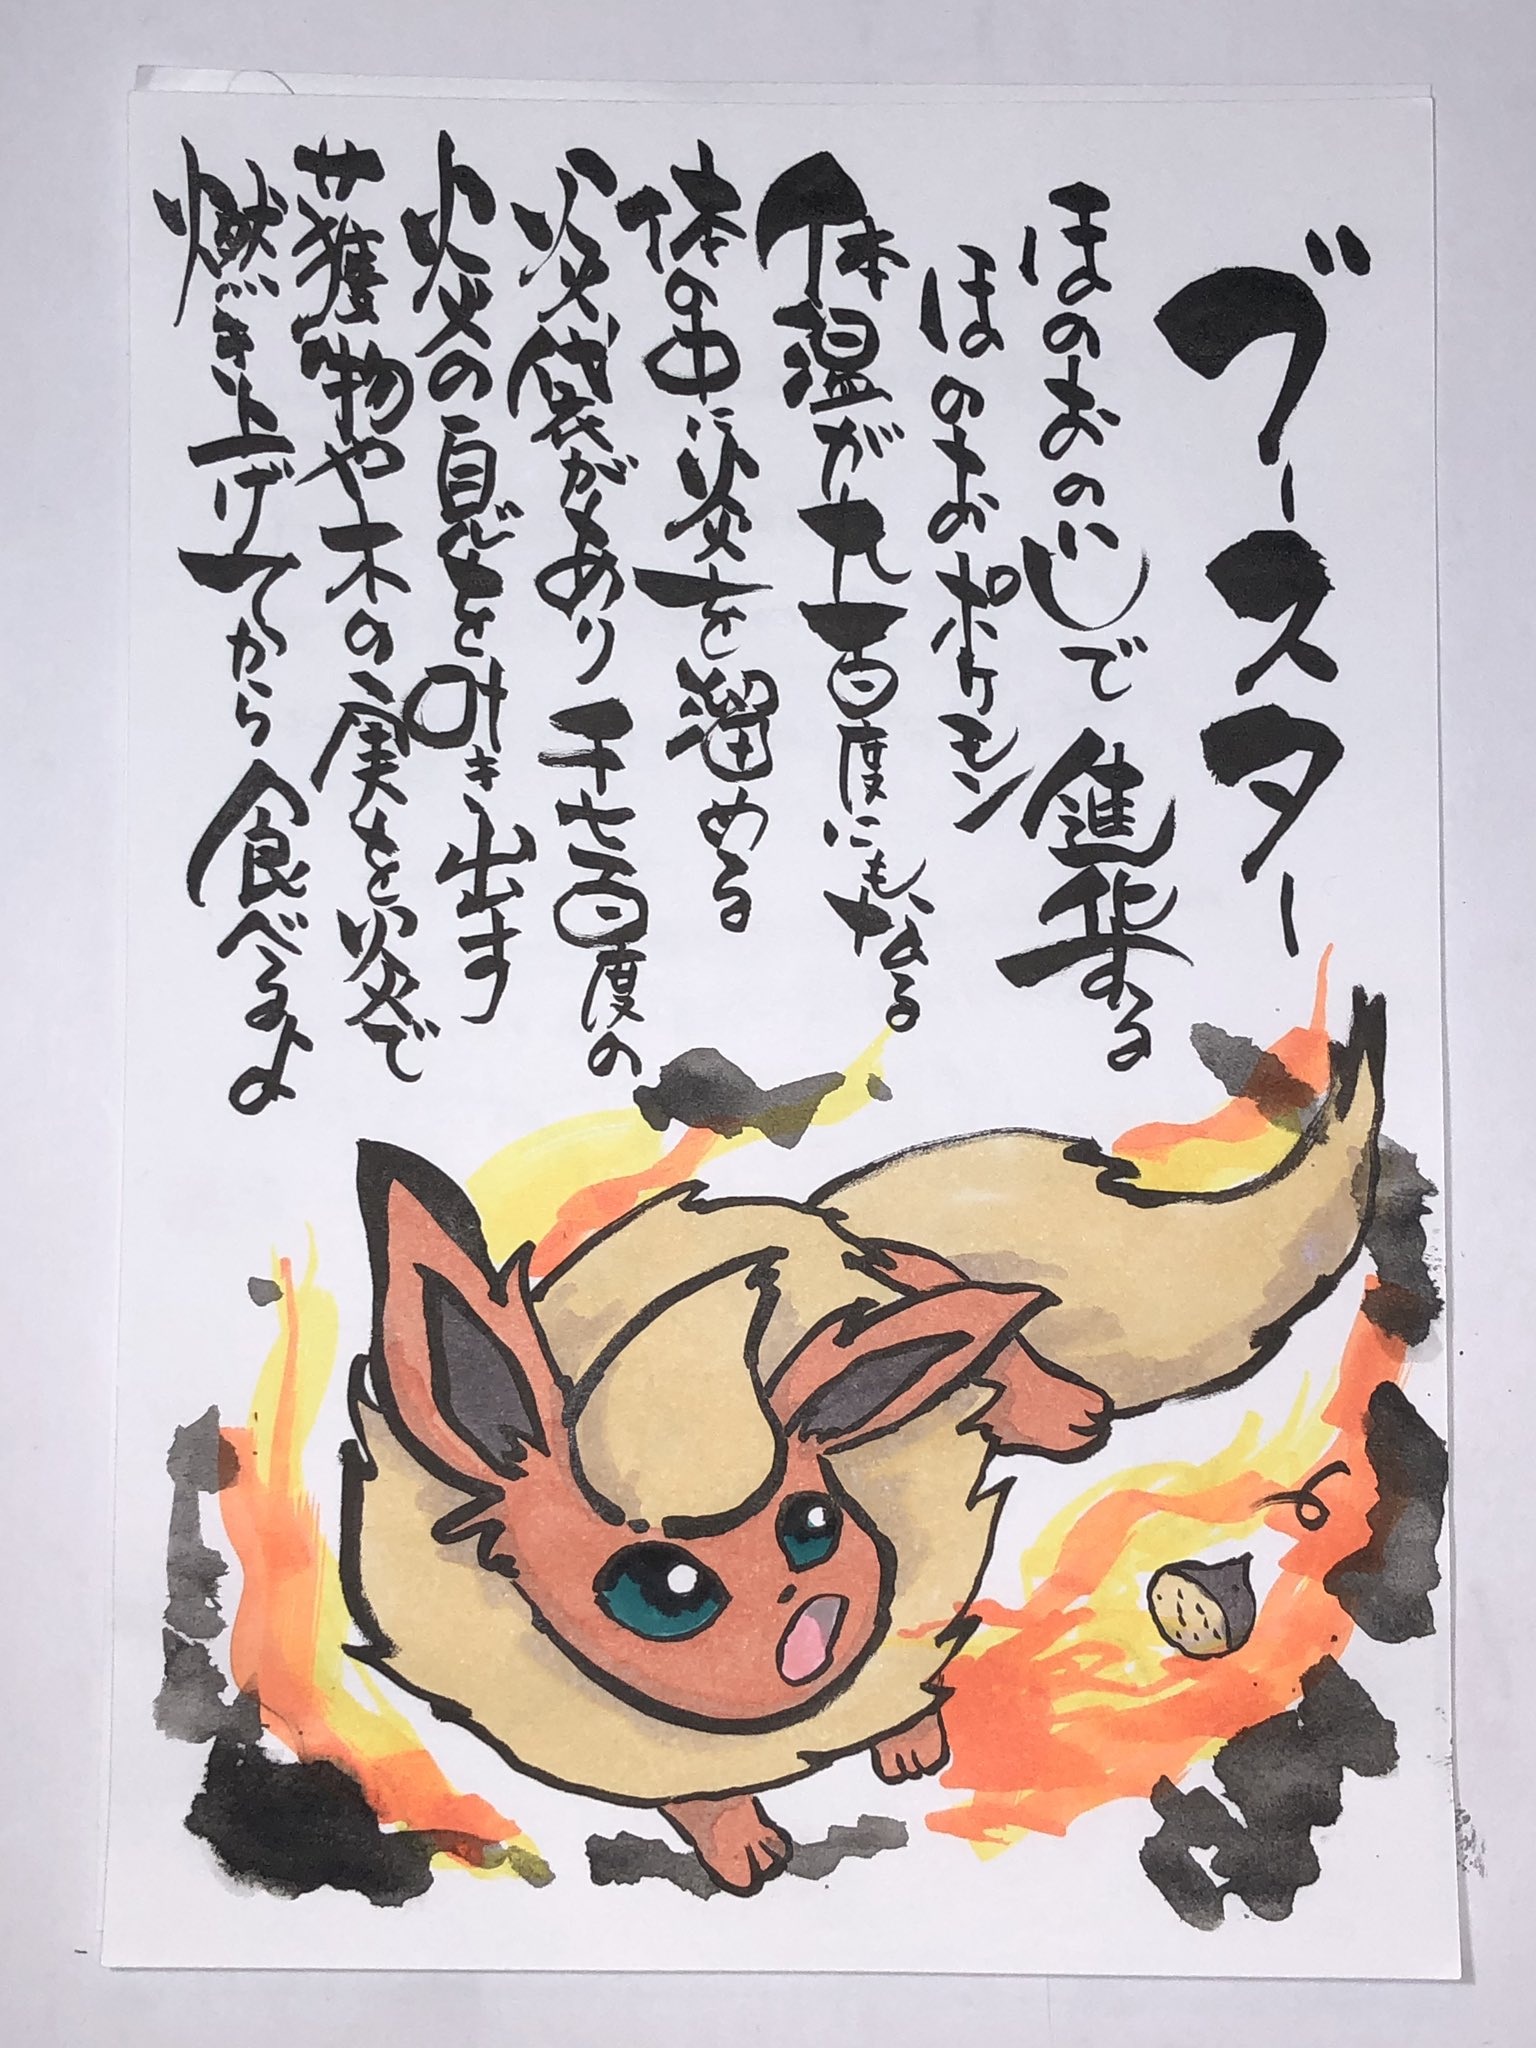 ブースター
ほのおのいしで進化する
ほのおポケモン
体温が九百度にもなる
体の中に炎を溜める
炎袋があり千七百度の
炎の息を吐き出す
獲物や木の実を炎で
燃き上げてから食べるよ